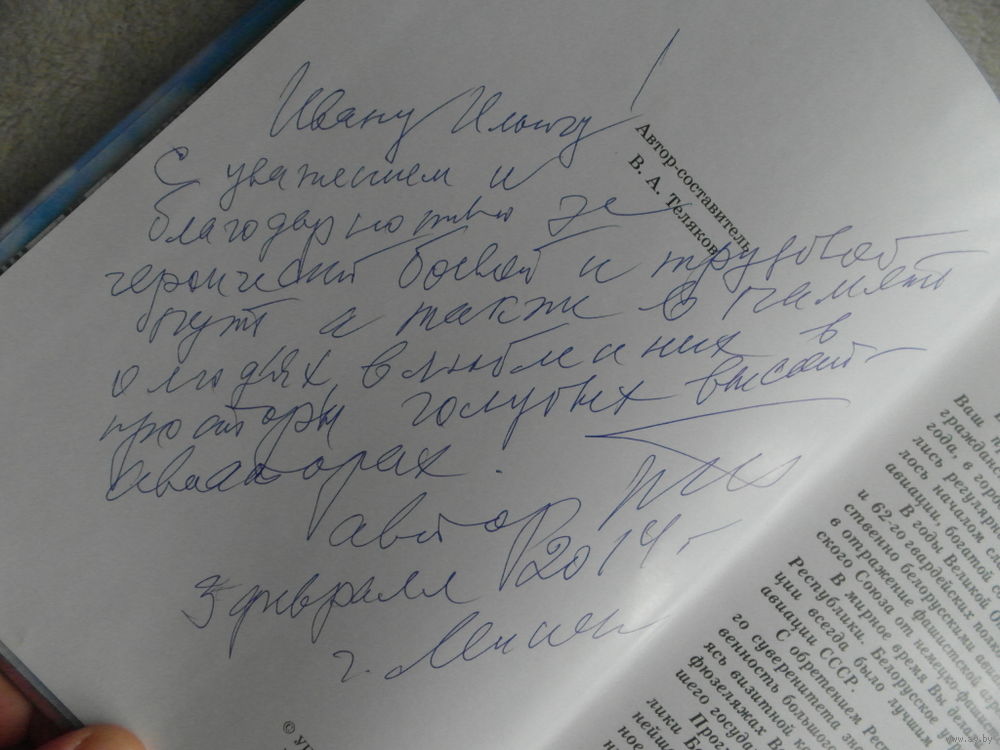 Ивану Ильичу!
С уважением и
благодарностью за
героический боевой и трудовой
путь а также в память
о людях влюбленных в
просторы голубых высот
авиаторах.
автор
5 февраля 2014 г.
г. Минск
Автор-составитель
В. А. Теляков
Ваш
гражданс
года, в горо
лись регулярн
лось началом сла
авиации, богатой с
В годы Великой О
и 62-го гвардейских полко
ственно белорусскими авиа
в отражение фашистской агр
ского Союза от немецко-фашис
В мирное время Вы дела
Республики. Белорусское уп
ции всегда было лучшим
авиации СССР.
С обретением Рес
го суверенитета зн
венность большо
ясь визитной
фюзеляжах Во
шего госуда
лики Б
нейш
ное
©
www.ay.by